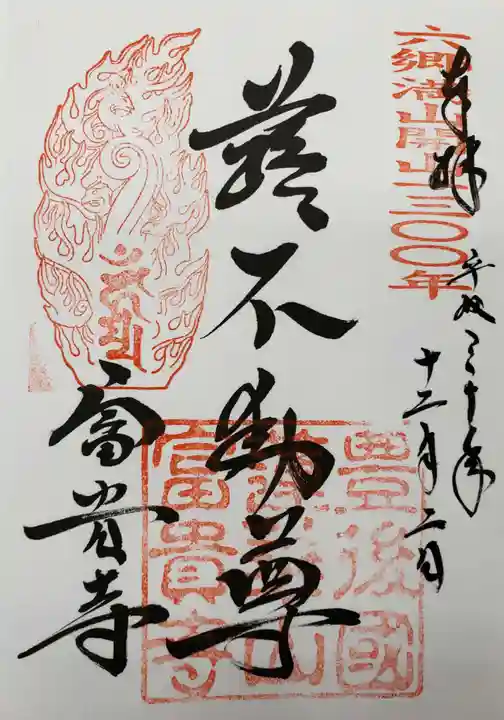 六郷満山開山一三〇〇年
奉拝
平成三十年
十二月二日
蕗不動尊
富貴寺
豊後國
蓮華山
富貴寺